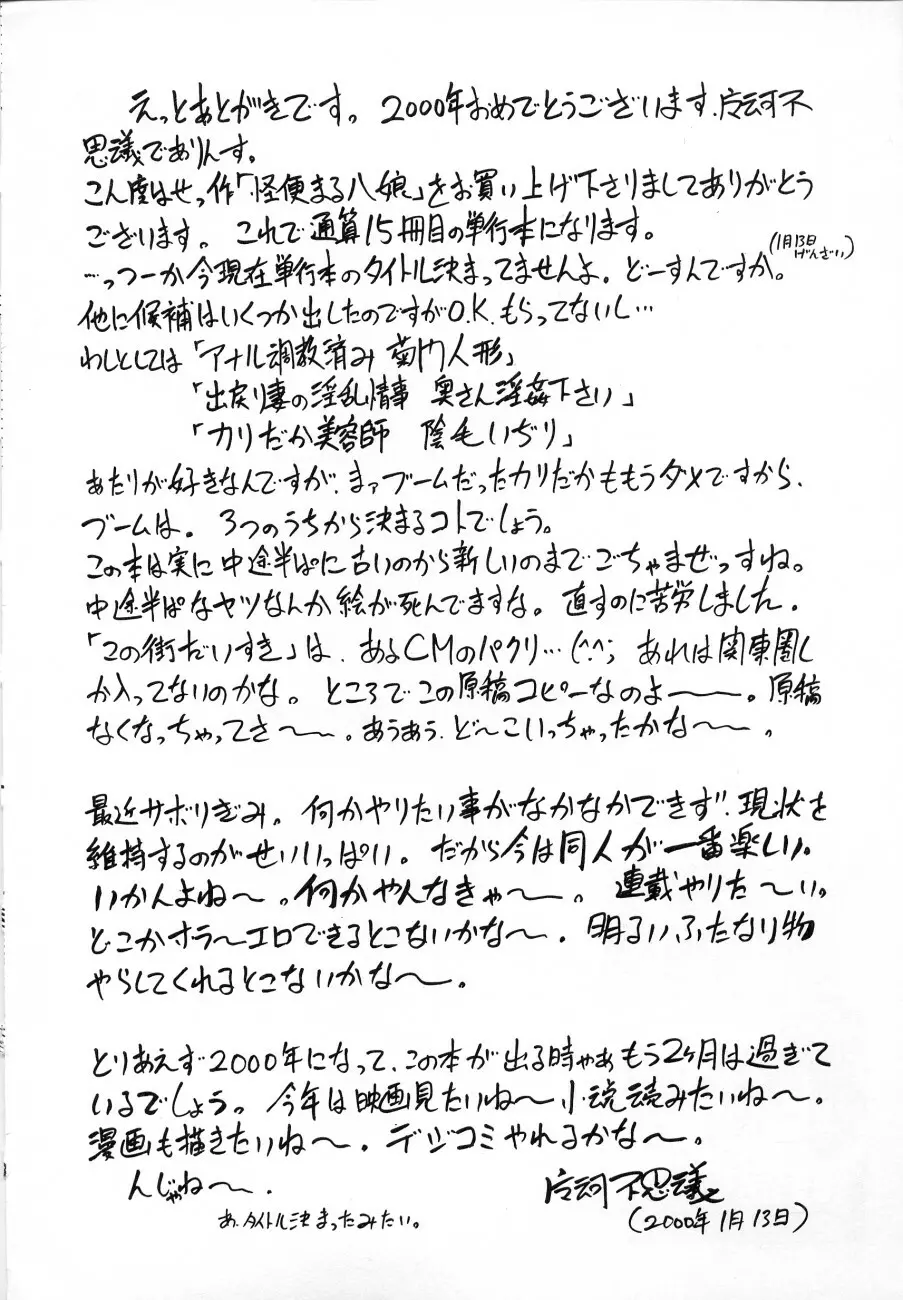 えっとあとがきです。2000年おめでとうございます、 不
思議でありんす。
こん度はせっ作「怪便まる八娘」をお買い上げ下さりましてありがとう
ございます。これで通算15冊目の単行本になります。
(1月13日
げんざい)
…っつーか今現在単行本のタイトル決まってませんよ。どーすんですか。
他に候補はいくつか出したのですがO.K.もらってないし…
わしとしては「アナル調教済み 菊門人形」
「出戻り妻の淫乱情事 奥さん淫姦下さい」
「カリだか美容師 陰毛いぢり」
あたりが好きなんですが、まァブームだったカリだかももうダメですから、
ブームは。3つのうちから決まるコトでしょう。
この本は実に中途半ぱに古いのから新しいのまでごちゃまぜっすね。
中途半ぱなヤツなんか絵が死んでますな。直すのに苦労しました。
「この街だいすき」は、あるCMのパクリ…(^^; あれは関東圏し
か入ってないのかな。ところでこの原稿コピーなのよ〜〜。原稿
なくなっちゃってさ〜〜。あうあう、ど〜こいっちゃったかな〜〜。
最近サボりぎみ。何かやりたい事がなかなかできず、現状を
維持するのがせいいっぱい。だから今は同人が一番楽しい。
いかんよね〜。何かやんなきゃ〜。連載やりた〜い。
どこかホラ〜エロできるとこないかな〜。明るいふたなり物
やらしてくれるとこないかな〜。
とりあえず2000年になって、この本が出る時ゃあもう2ヶ月は過ぎて
いるでしょう。今年は映画見たいね〜小説読みたいね〜。
漫画も描きたいね〜。デジコミやれるかな〜。
んじゃね〜。
不思議
あ、タイトル決まったみたい。
(2000年1月13日)